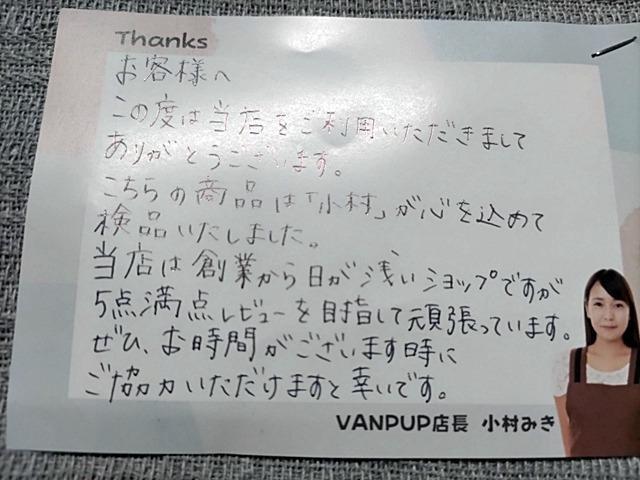 Thanks
お客様へ
この度は当店をご利用いただきまして
ありがとうございます。
こちらの商品は「小村」が心を込めて
検品いたしました。
当店は創業から日が浅いショップですが
5点満点レビューを目指して頑張っています。
ぜひ、お時間がございます時に
ご協力いただけますと幸いです。
VANPUP店長 小村みき